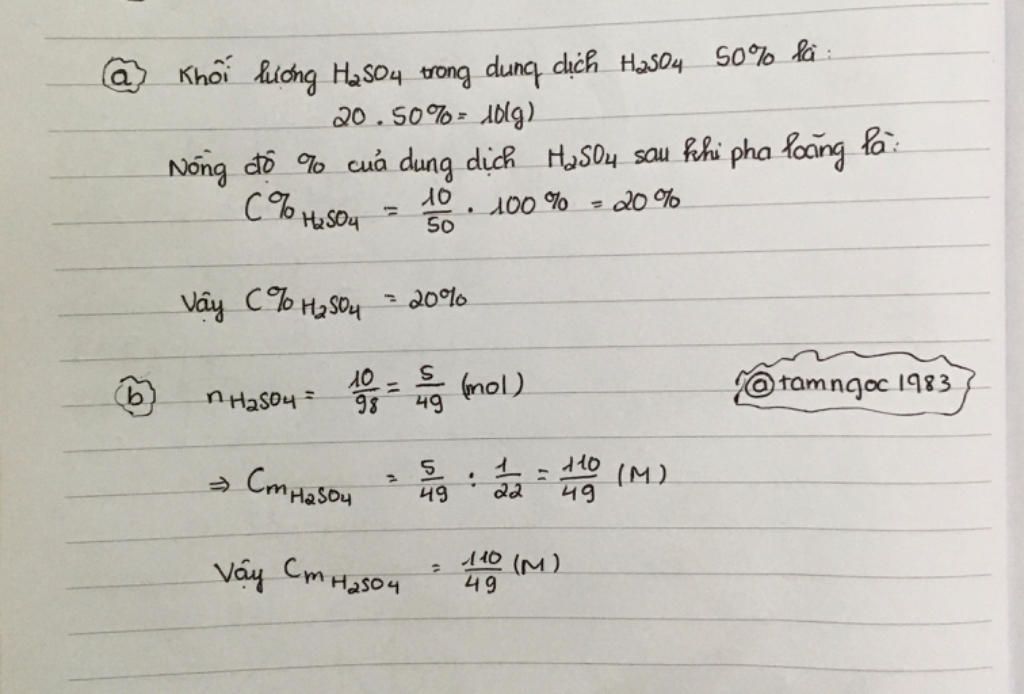 (a) Khối lượng H₂SO₄ trong dung dịch H₂SO₄ 50% là:
20 . 50% = 10(g)
Nồng độ % của dung dịch H₂SO₄ sau khi pha loãng là:
C% H₂SO₄ = 10/50 . 100% = 20%
Vậy C% H₂SO₄ = 20%
(b) n H₂SO₄ = 10/98 = 5/49 (mol)
@tamngoc1983
⇒ Cm H₂SO₄ = 5/49 : 1/22 = 110/49 (M)
Vậy Cm H₂SO₄ = 110/49 (M)